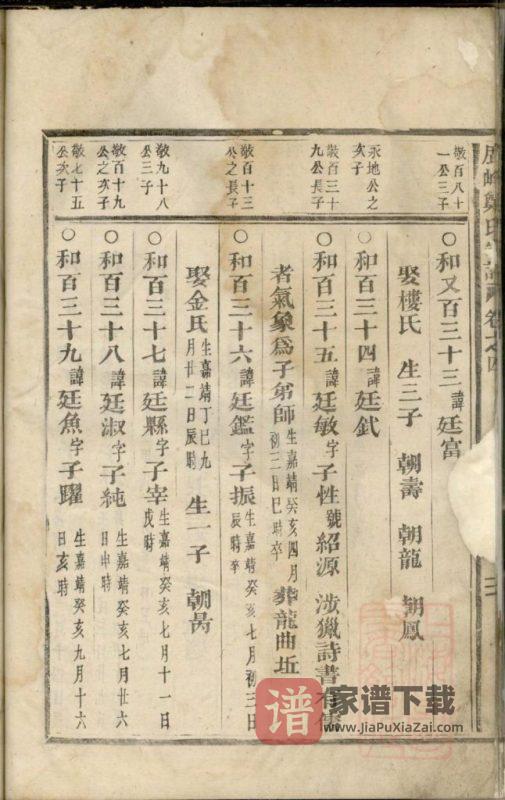 氏宗譜 卷之四
敬百八十一公三子
○和又百三十三諱廷富
娶樓氏 生三子 朝壽 朝龍 朝鳳
永地公之次子
○和百三十四諱廷釴
敬百三十九公長子
○和百三十五諱廷敏字子性號紹源 涉獵詩書有儒
者氣象爲子弟師生嘉靖癸亥四月初三日巳時卒 葬龍曲坵
敬百十三公之長子
○和百三十六諱廷鑑字子振生嘉靖癸亥七月初三日辰時卒
娶金氏生嘉靖丁巳九月廿二日辰時 生一子 朝昺
敬九十八公三子
○和百三十七諱廷縣字子宰生嘉靖癸亥七月十一日戌時
敬百十九公之次子
○和百三十八諱廷淑字子純生嘉靖癸亥七月廿六日申時
敬七十五公次子
○和百三十九諱廷魚字子躍生嘉靖癸亥九月十六日亥時
三
谱 家谱下载
www.JiaPuXiaZai.com